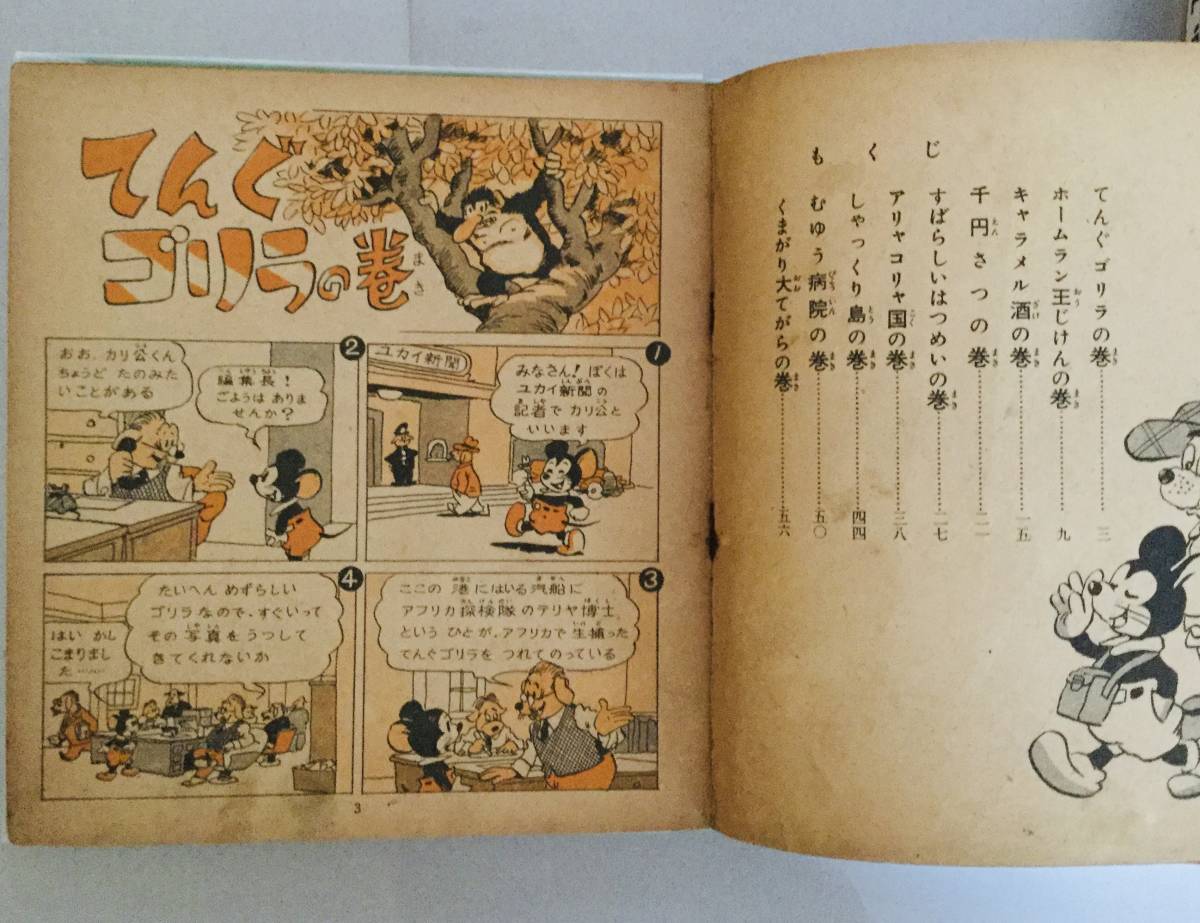 もくじ
てんぐゴリラの巻…………三
ホームラン王じけんの巻…………九
キャラメル酒の巻…………一五
千円さつの巻…………二一
すばらしいはつめいの巻…………二七
アリャコリャ国の巻…………三八
しゃっくり島の巻…………四四
むゆう病院の巻…………五〇
くまがり大てがらの巻…………五六
てんぐ
ゴリラの巻
まき
1
ユカイ新聞
みなさん!ぼくは
ユカイ新聞の
記者でカリ公と
いいます
2
編集長!
ごようはありま
せんか?
おお、カリ公くん
ちょうど たのみた
いことがある
3
ここの 港にはいる汽船に
アフリカ探検隊のテリヤ博士
という ひとが、アフリカで生捕った
てんぐゴリラを つれてのっている
4
たいへん めずらしい
ゴリラなので、すぐいって
その写真をうつして
きてくれないか
はい かし
こまりまし
た……
3